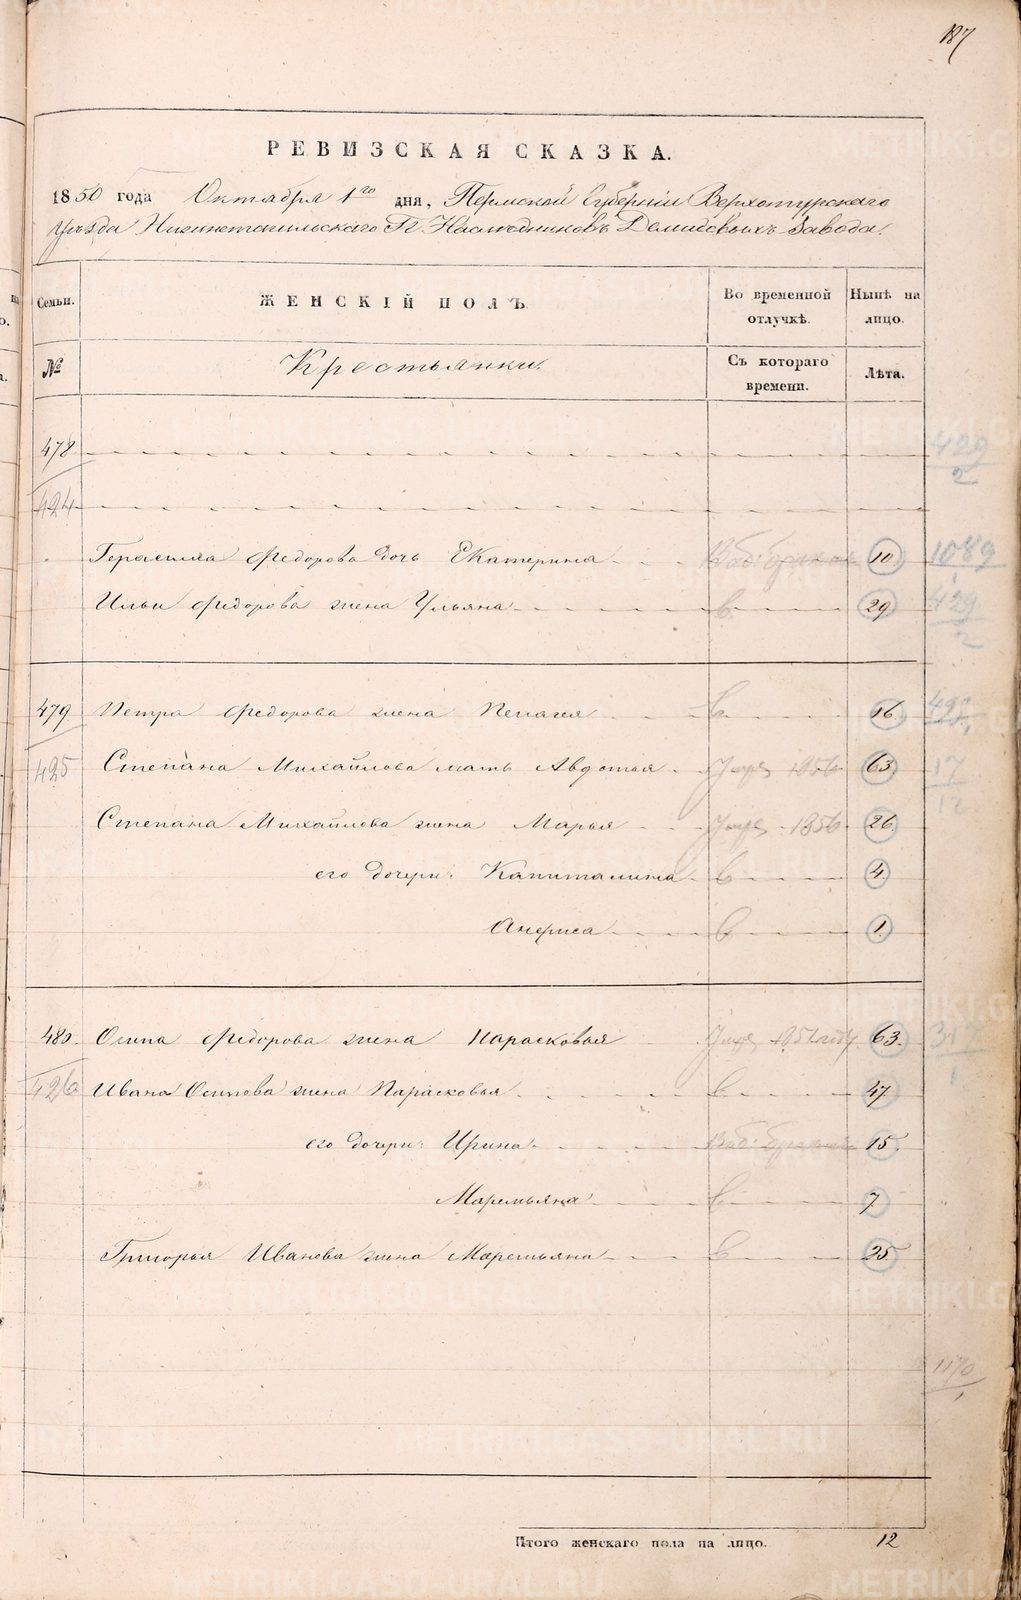 187
РЕВИЗСКАЯ СКАЗКА.
1850 года Октября 1го дня, Пермской Губернiи Верхотурскаго
Уѣзда Нижнетагильскаго Г. Наслѣдниковъ Демидовыхъ Завода.
Семьи. ЖЕНСКIЙ ПОЛЪ Во временной отлучкѣ. Нынѣ на лицо.
№ Крестьянки. Съ котораго времени. Лѣта.
478 429/2
424
Герасима Федорова дочь Екатерина 10 1089/1
Ильи Федорова жена Ульяна в. 29 429/2
479 Петра Федорова жена Пелагея в 16
425 Степана Михайлова мать Авдотья 1856 63 17/12
Степана Михайлова жена Марья 1856 26
его дочери: Капиталина в 4
Анфиса в 1
480 Осипа Федорова жена Парасковья 63.
426 Ивана Осипова жена Парасковья в 47
его дочери: Ирина 15
Маремьяна в 7
Григорья Иванова жена Маремьяна в 25
1170/1
Итого женскаго пола на лицо. 12
METRIKI.GASO-URAL.RU